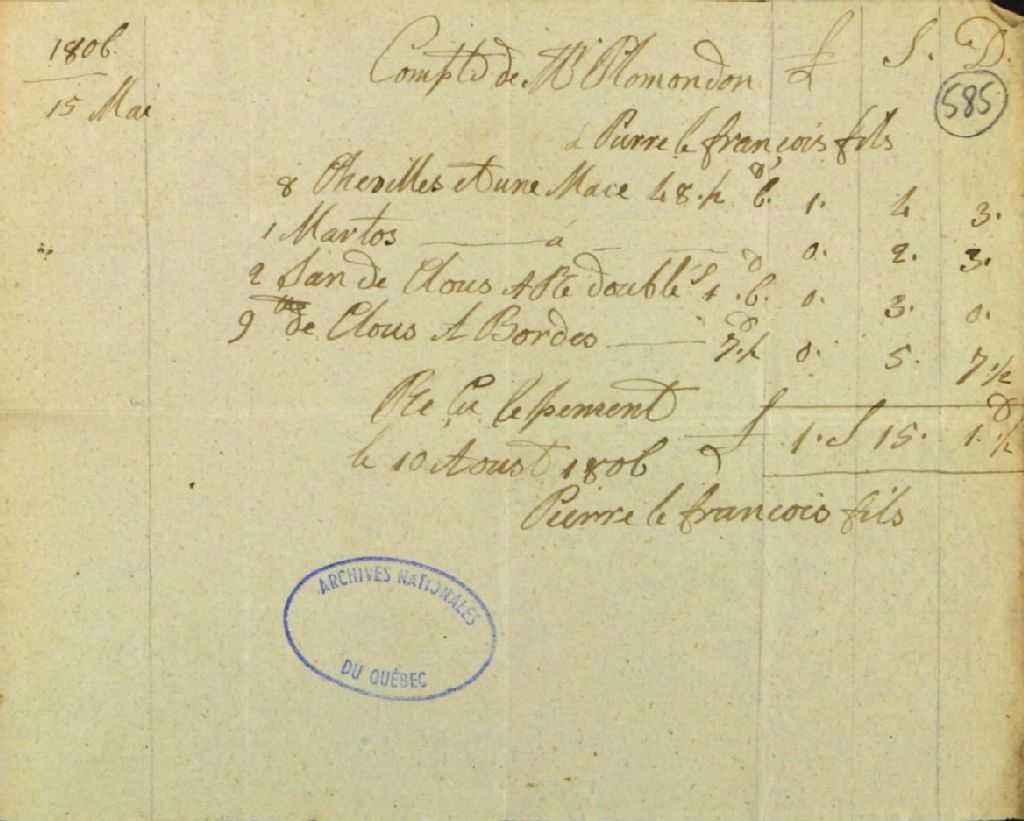 1806
15 Mai
Compte de Mr Plomondon £ S. D.
585
à Pierre le françois fils
8 Chevilles et une Mace 48.½ d 6. 1. 4 3.
1 Martos à 0. 2. 3.
2 de Clous A doublé 1.6. d 0. 3. 0.
9 de Clous A Bordes 7.½ d 0. 5. 7.½
Re Cu le pement £ 1. S 15. 1.½ d
le 10 Aoust 1806
Pierre le françois fils
ARCHIVES NATIONALES
DU QUÉBEC